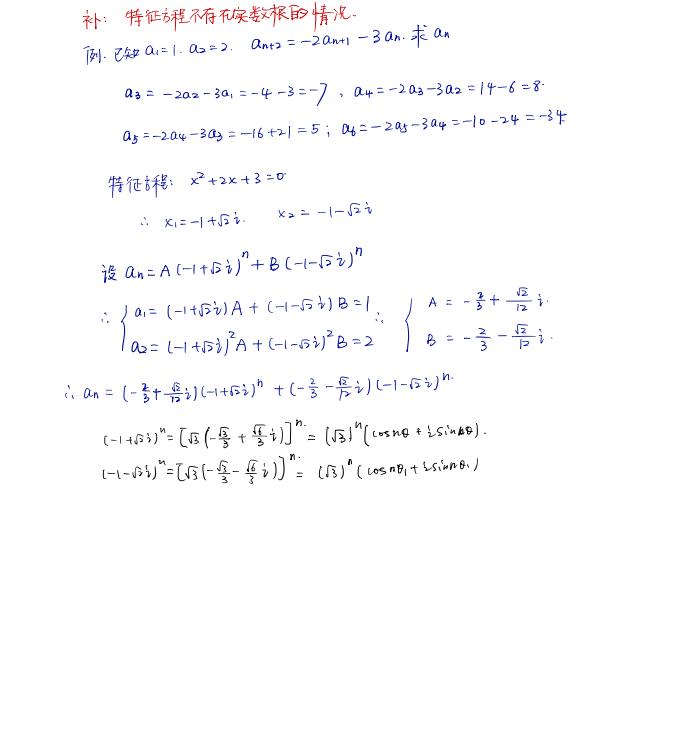 补: 特征方程不存在实数根的情况.
例. 已知 a₁=1. a₂=2. aₙ₊₂=-2aₙ₊₁-3aₙ. 求 aₙ
a₃=-2a₂-3a₁=-4-3=-7, a₄=-2a₃-3a₂=14-6=8.
a₅=-2a₄-3a₃=-16+21=5; a₆=-2a₅-3a₄=-10-24=-34
特征方程: x²+2x+3=0
∴ x₁=-1+√2i. x₂=-1-√2i
设 aₙ=A(-1+√2i)ⁿ+B(-1-√2i)ⁿ
∴ { a₁=(-1+√2i)A+(-1-√2i)B=1 ∴ { A=-2/3+√2/12 i.
a₂=(-1+√2i)²A+(-1-√2i)²B=2 B=-2/3-√2/12 i.
∴ aₙ=(-2/3+√2/12 i)(-1+√2i)ⁿ+(-2/3-√2/12 i)(-1-√2i)ⁿ.
(-1+√2i)ⁿ=[√3(-√3/3+√6/3 i)]ⁿ.=(√3)ⁿ(cosnθ+isinnθ).
(-1-√2i)ⁿ=[√3(-√3/3-√6/3 i)]ⁿ.=(√3)ⁿ(cosnθ₁+isinnθ₁)